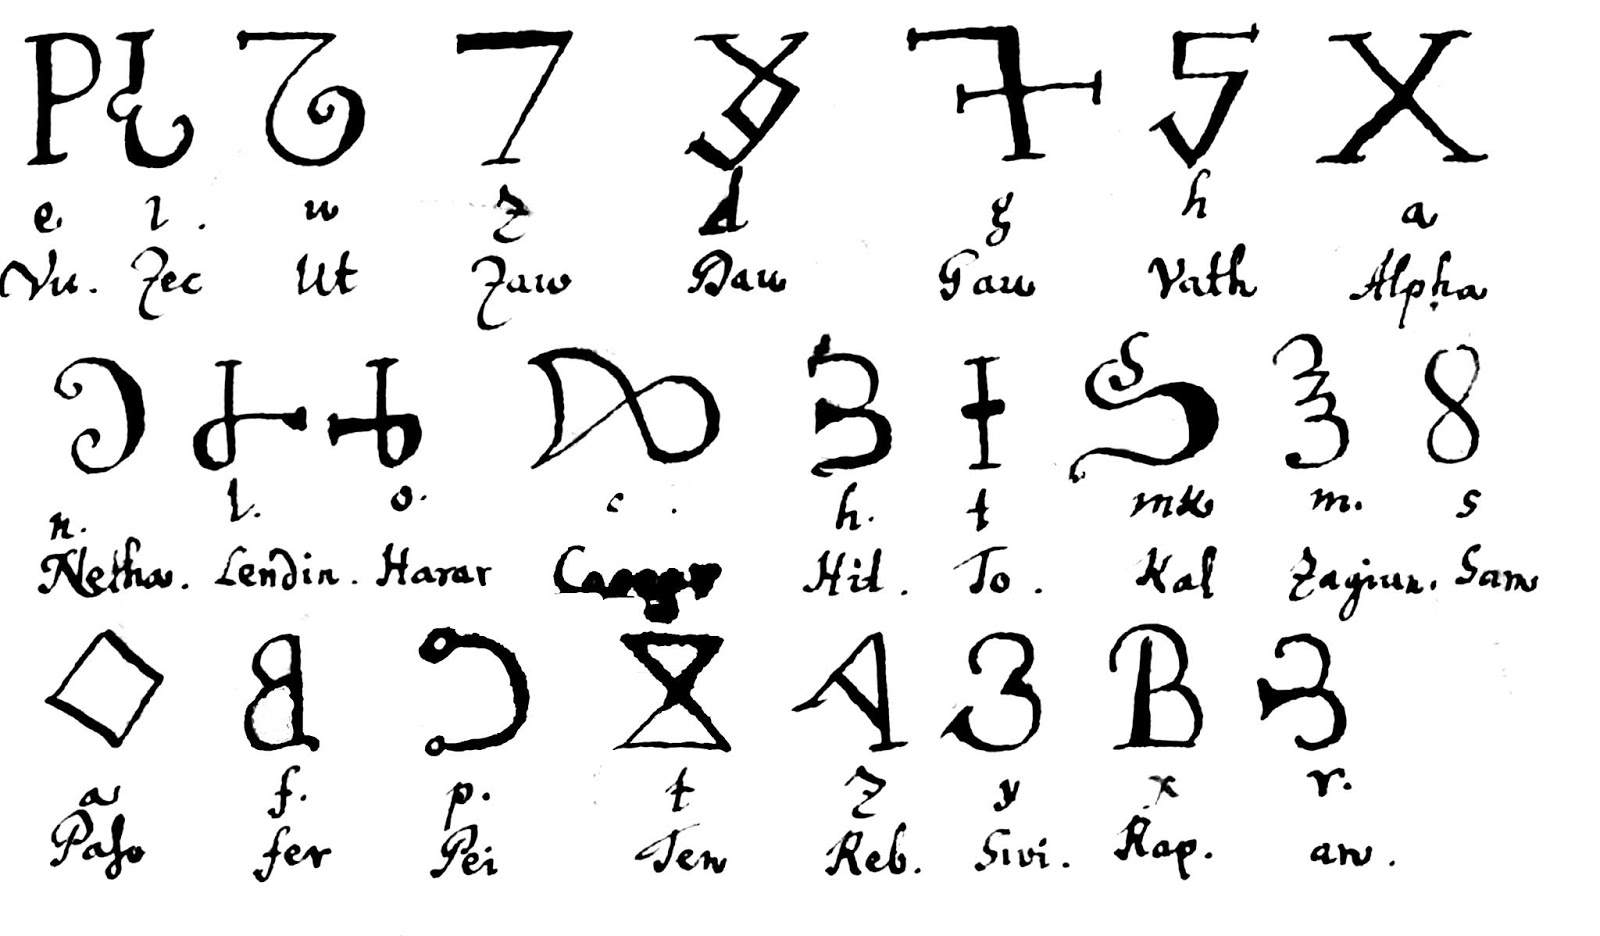 e l . w z d g h a
Vu. Zec Ut Zaw Dau Gau Vath Alpha
n. l. o. c . h. t m s
Netha. Lendin. Harar Hit. To. Kal Zagiun. Sam
a f. p. t z y x r.
fer Pei Ten Reb. Sivi. Rap. an.